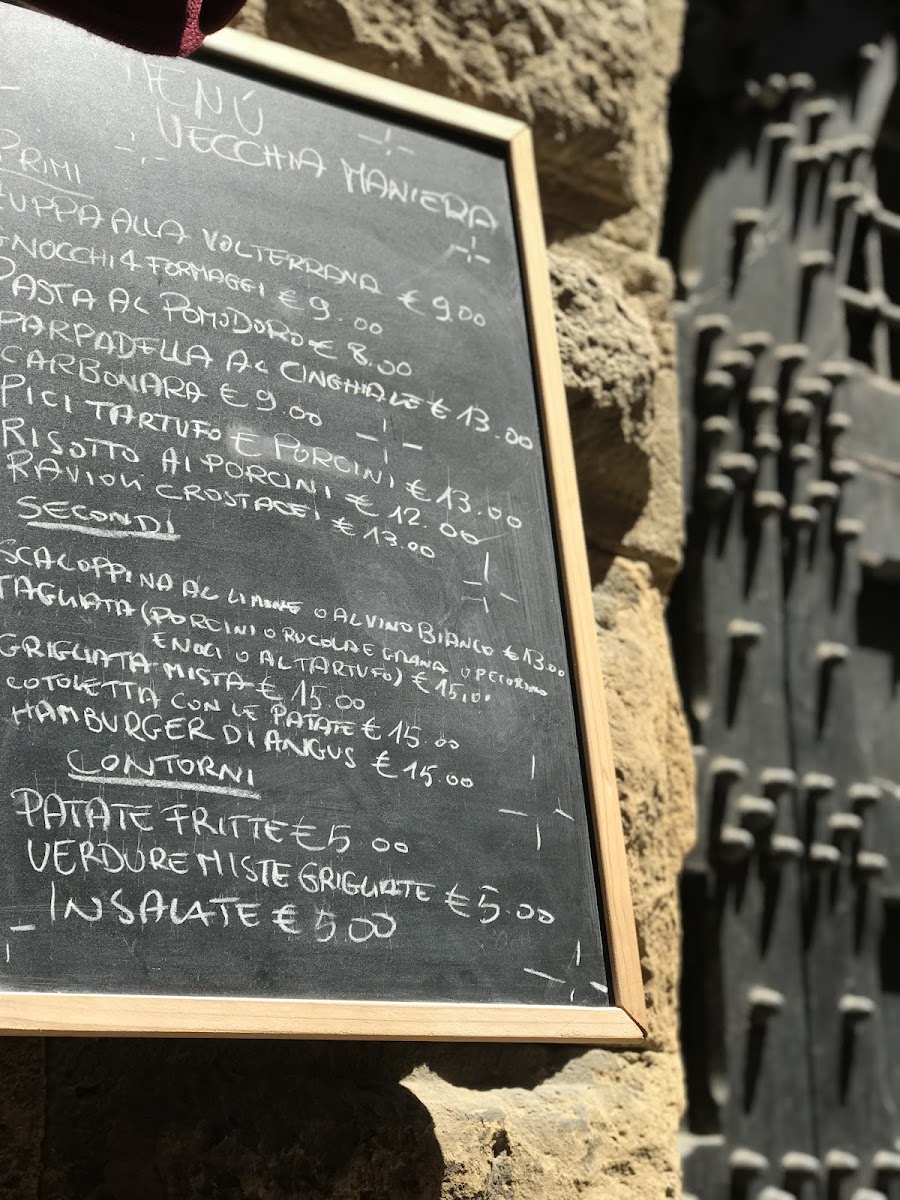 MENÙ
VECCHIA MANIERA
PRIMI
ZUPPA ALLA VOLTERRANA € 9,00
GNOCCHI 4 FORMAGGI € 9.00
PASTA AL POMODORO € 8.00
PARPADELLA AL CINGHIALE € 13.00
CARBONARA € 9.00
PICI TARTUFO E PORCINI € 13.00
RISOTTO AI PORCINI € 12.00
RAVIOLI CROSTACEI € 13.00
SECONDI
SCALOPPINA AL LIMONE O AL VINO BIANCO € 13.00
TAGLIATA (PORCINI O RUCOLA E GRANA O PECORINO
E NOCI O AL TARTUFO) € 15,00
GRIGLIATA MISTA € 15.00
COTOLETTA CON LE PATATE € 15.00
HAMBURGER DI ANGUS € 15.00
CONTORNI
PATATE FRITTE € 5.00
VERDURE MISTE GRIGLIATE € 5.00
INSALATE € 5,00